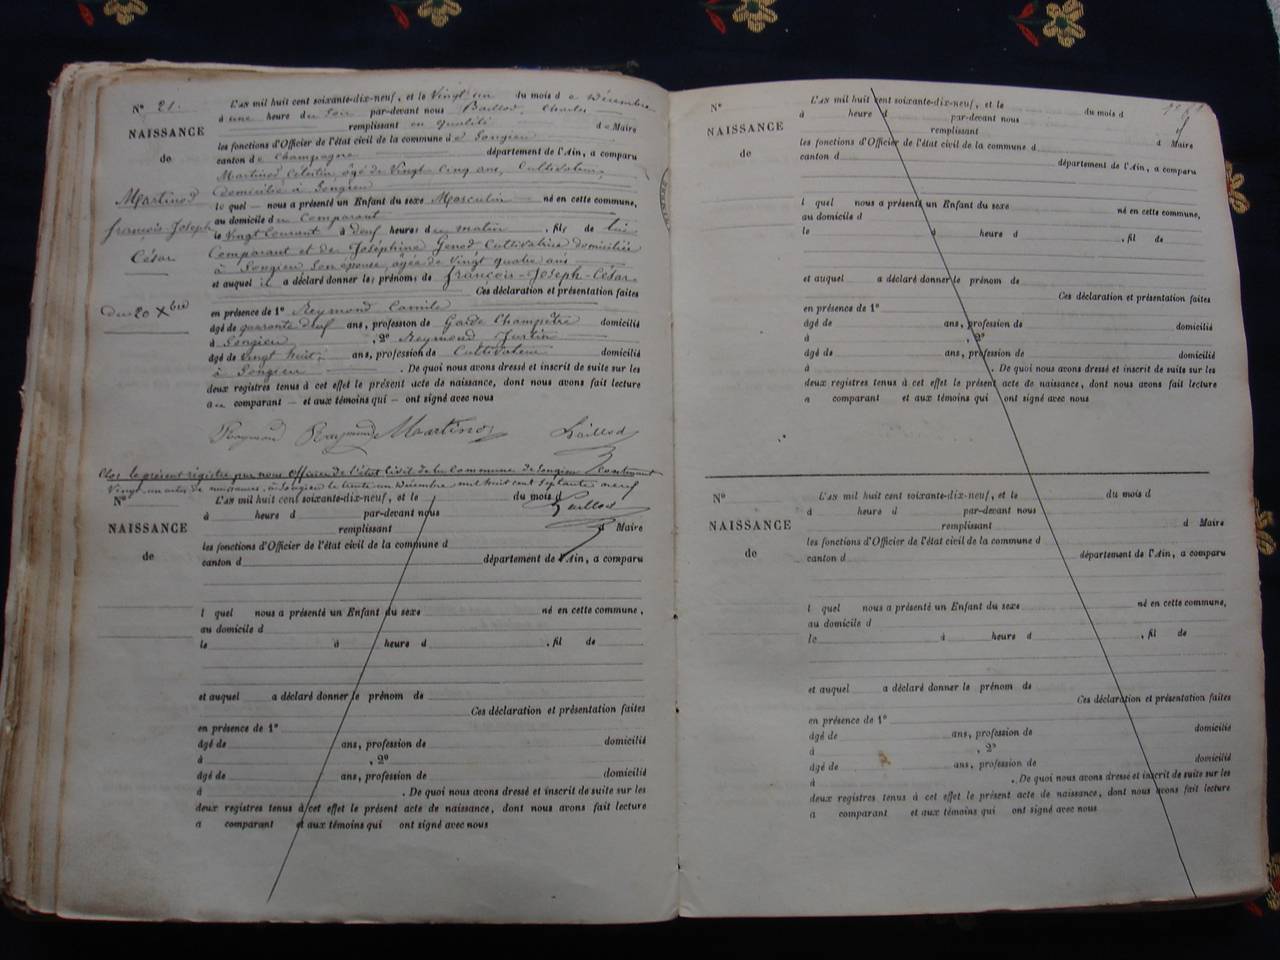 N° 21.
NAISSANCE
de
Martinod
françois Joseph
César
Du 20 Xbre
L'AN mil huit cent soixante-dix-neuf, et le Vingt un du mois de Décembre
à une heure du Soir par-devant nous Baillod, Charles
remplissant en qualité de Maire
les fonctions d'Officier de l'état civil de la commune de Songieu
canton de Champagne département de l'Ain, a comparu
Martinod, Célestin, âgé de Vingt Cinq ans, Cultivateur,
domicilié à Songieu
le quel — nous a présenté un Enfant du sexe Masculin né en cette commune,
au domicile du Comparant
le Vingt Courant à deux heures du matin, fils de lui
Comparant et de Joséphine Genod, Cultivatrice domiciliée
à Songieu Son épouse, âgée de Vingt quatre ans
et auquel il a déclaré donner les prénoms de françois-Joseph-César
Ces déclaration et présentation faites
en présence de 1° Reymond Camile
âgé de quarante deux ans, profession de Garde Champêtre domicilié
à Songieu, 2° Reymond Justin
âgé de Vingt huit ans, profession de Cultivateur domicilié
à Songieu. De quoi nous avons dressé et inscrit de suite sur les
deux registres tenus à cet effet le présent acte de naissance, dont nous avons fait lecture
au comparant — et aux témoins qui — ont signé avec nous
Reymond Reymond Martinod Baillod
Clos le présent régistre par nous Officier de l'état Civil de la Commune de Songieu Contenant
Vingt un actes de naissances, à Songieu le trente un Décembre mil huit cent Septante neuf
Baillod
N°
NAISSANCE
de
L'AN mil huit cent soixante-dix-neuf, et le du mois d
à heure d par-devant nous
remplissant d Maire
les fonctions d'Officier de l'état civil de la commune d
canton d département de l'Ain, a comparu
l quel nous a présenté un Enfant du sexe né en cette commune,
au domicile d
le à heure d , fil de
et auquel a déclaré donner le prénom de
Ces déclaration et présentation faites
en présence de 1°
âgé de ans, profession de domicilié
à , 2°
âgé de ans, profession de domicilié
à . De quoi nous avons dressé et inscrit de suite sur les
deux registres tenus à cet effet le présent acte de naissance, dont nous avons fait lecture
a comparant et aux témoins qui ont signé avec nous
N°
NAISSANCE
de
L'AN mil huit cent soixante-dix-neuf, et le du mois d
à heure d par-devant nous
remplissant d Maire
les fonctions d'Officier de l'état civil de la commune d
canton d département de l'Ain, a comparu
l quel nous a présenté un Enfant du sexe né en cette commune,
au domicile d
le à heure d , fil de
et auquel a déclaré donner le prénom de
Ces déclaration et présentation faites
en présence de 1°
âgé de ans, profession de domicilié
à , 2°
âgé de ans, profession de domicilié
à . De quoi nous avons dressé et inscrit de suite sur les
deux registres tenus à cet effet le présent acte de naissance, dont nous avons fait lecture
a comparant et aux témoins qui ont signé avec nous
N°
NAISSANCE
de
L'AN mil huit cent soixante-dix-neuf, et le du mois d
à heure d par-devant nous
remplissant d Maire
les fonctions d'Officier de l'état civil de la commune d
canton d département de l'Ain, a comparu
l quel nous a présenté un Enfant du sexe né en cette commune,
au domicile d
le à heure d , fil de
et auquel a déclaré donner le prénom de
Ces déclaration et présentation faites
en présence de 1°
âgé de ans, profession de domicilié
à , 2°
âgé de ans, profession de domicilié
à . De quoi nous avons dressé et inscrit de suite sur les
deux registres tenus à cet effet le présent acte de naissance, dont nous avons fait lecture
a comparant et aux témoins qui ont signé avec nous